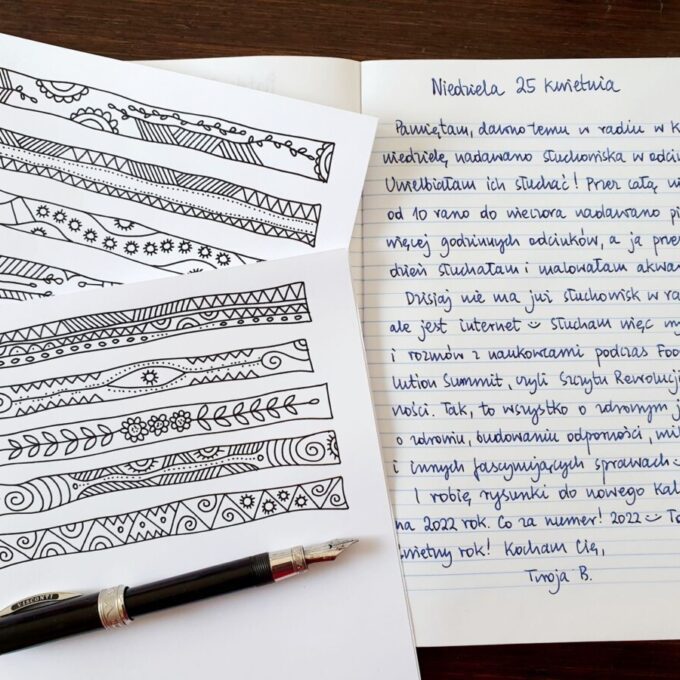 Niedziela 25 kwietnia
Pamiętam, dawno temu w radiu w K
niedzielę, nadawano słuchowiska w odci
Uwielbiałam ich słuchać! Przez całą ni
od 10 rano do wieczora nadawano pi
więcej godzinnych odcinków, a ja prze
dzień słuchałam i malowałam akwa
Dzisiaj nie ma już słuchowisk w ra
ale jest internet słucham więc my
i rozmów z naukowcami podczas Foo
lution Summit, czyli Szczytu Rewolucji
ności. Tak, to wszystko o zdrowym j
o zdrowiu, budowaniu odporności, mi
i innych fascynujących sprawach
I robię rysunki do nowego Kal
na 2022 rok. Co za numer! 2022 To
świetny rok! Kocham Cię,
Twoja B.
VISCONTI